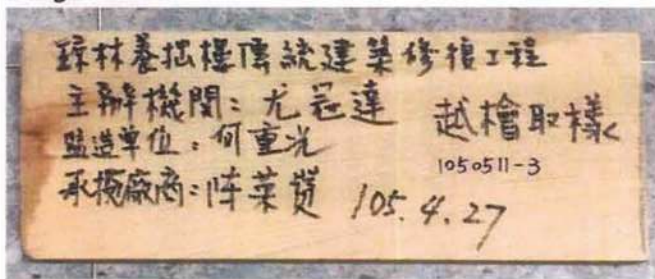 琼林養拙樓傳統建築修復工程
主辦機関：尤冠達
監造单位：何重光
承攬廠商：陈荣贤
越檜取樣
1050511-3
105.4.27